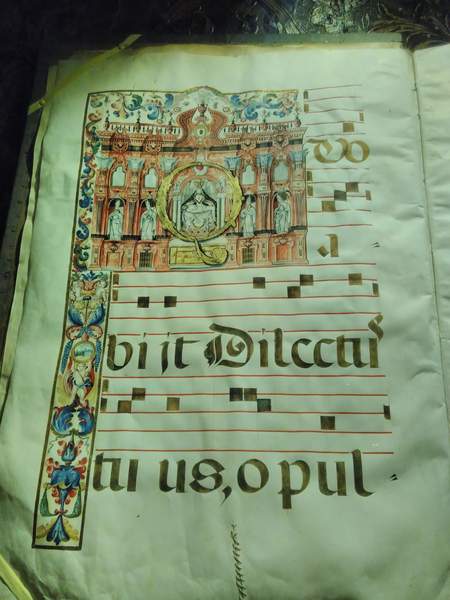 Qvo
a
bi it Dilectus
tu us, o pul